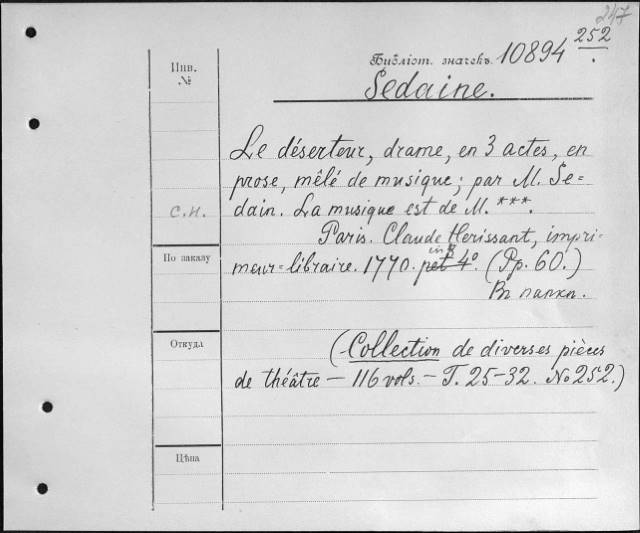 247
Библіот. значекъ. 10894 252.
Sedaine.
Инв.
№
Le déserteur, drame, en 3 actes, en
prose, mêlé de musique; par M. Se=
с.н.
dain. La musique est de M. ***.
Paris. Claude Herissant, impri-
По заказу
in 8
meur=libraire. 1770. pet 4° (Pp. 60.)
Въ папкѣ.
Откуда
(Collection de diverses pièces
de théâtre — 116 vols. — T. 25-32. No 252.)
Цѣна